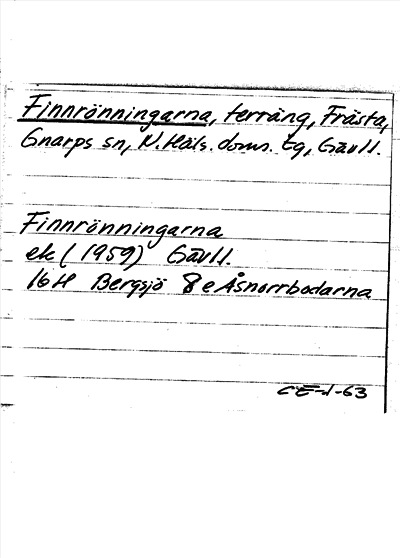 Finnrönningarna, terräng, Frästa,
Gnarps sn, N. Häls. doms. tg, Gävl l.
Finnrönningarna
ek (1959) Gävl l.
16H Bergsjö 8 e Åsnorrbodarna
CE-1-63